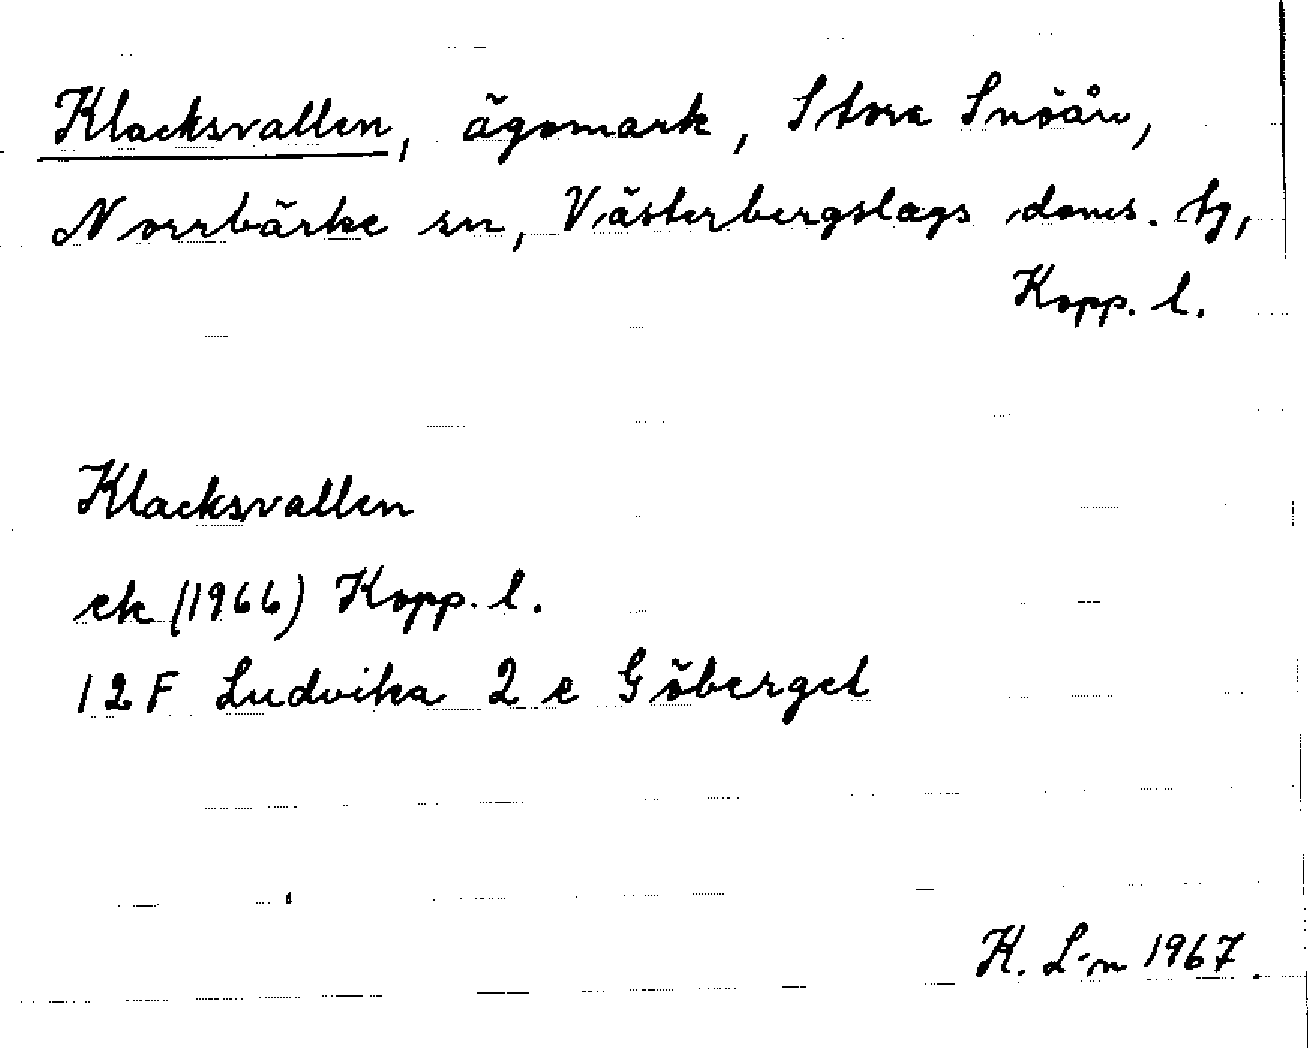 Klacksvallen, ägomark, Stora Snöån,
Norrbärke sn, Västerbergslags doms. tg,
Kopp. l.
Klacksvallen
ek (1966) Kopp. l.
12F Ludvika 2 e Göberget
K. L-n 1967.